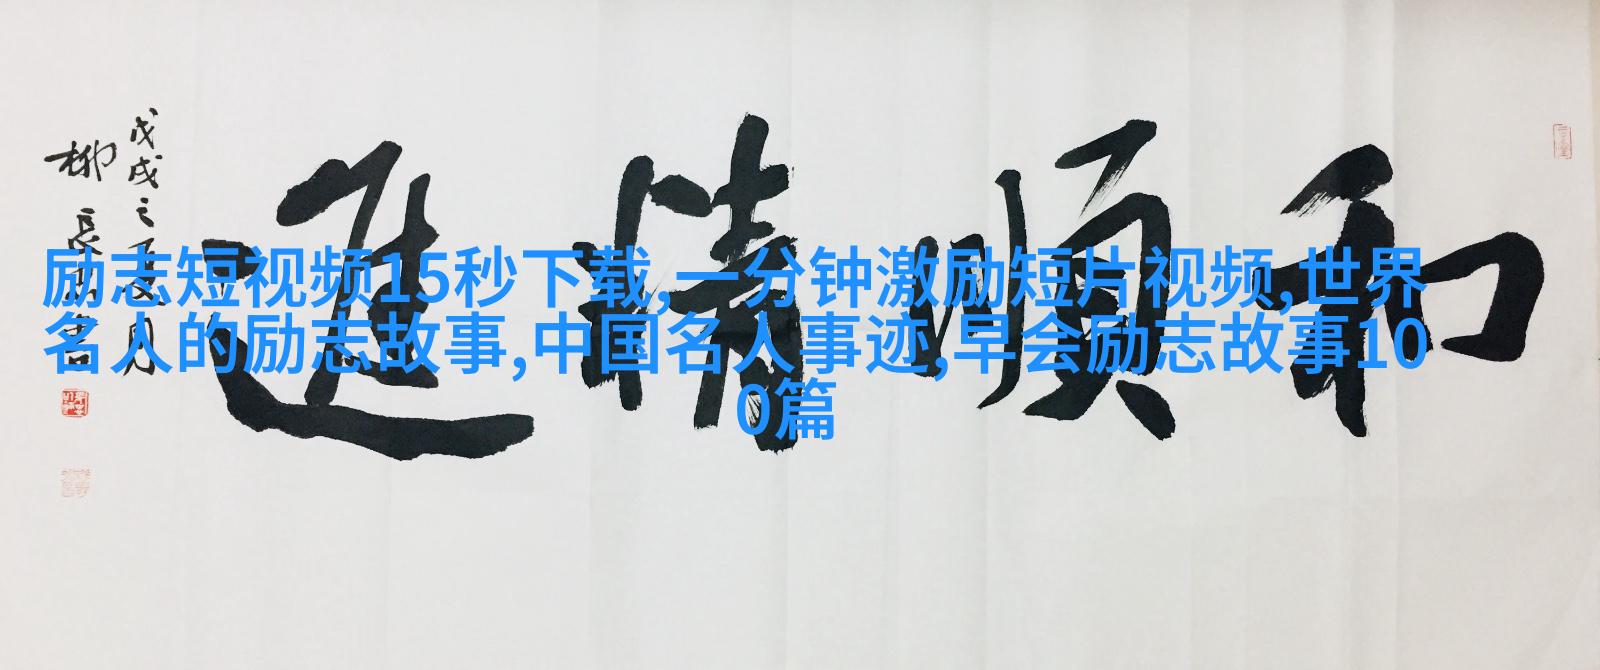 和順情進
戊戌之
柳長
励志短视频15秒下载,一分钟激励短片视频,世界
名人的励志故事,中国名人事迹,早会励志故事10
0篇